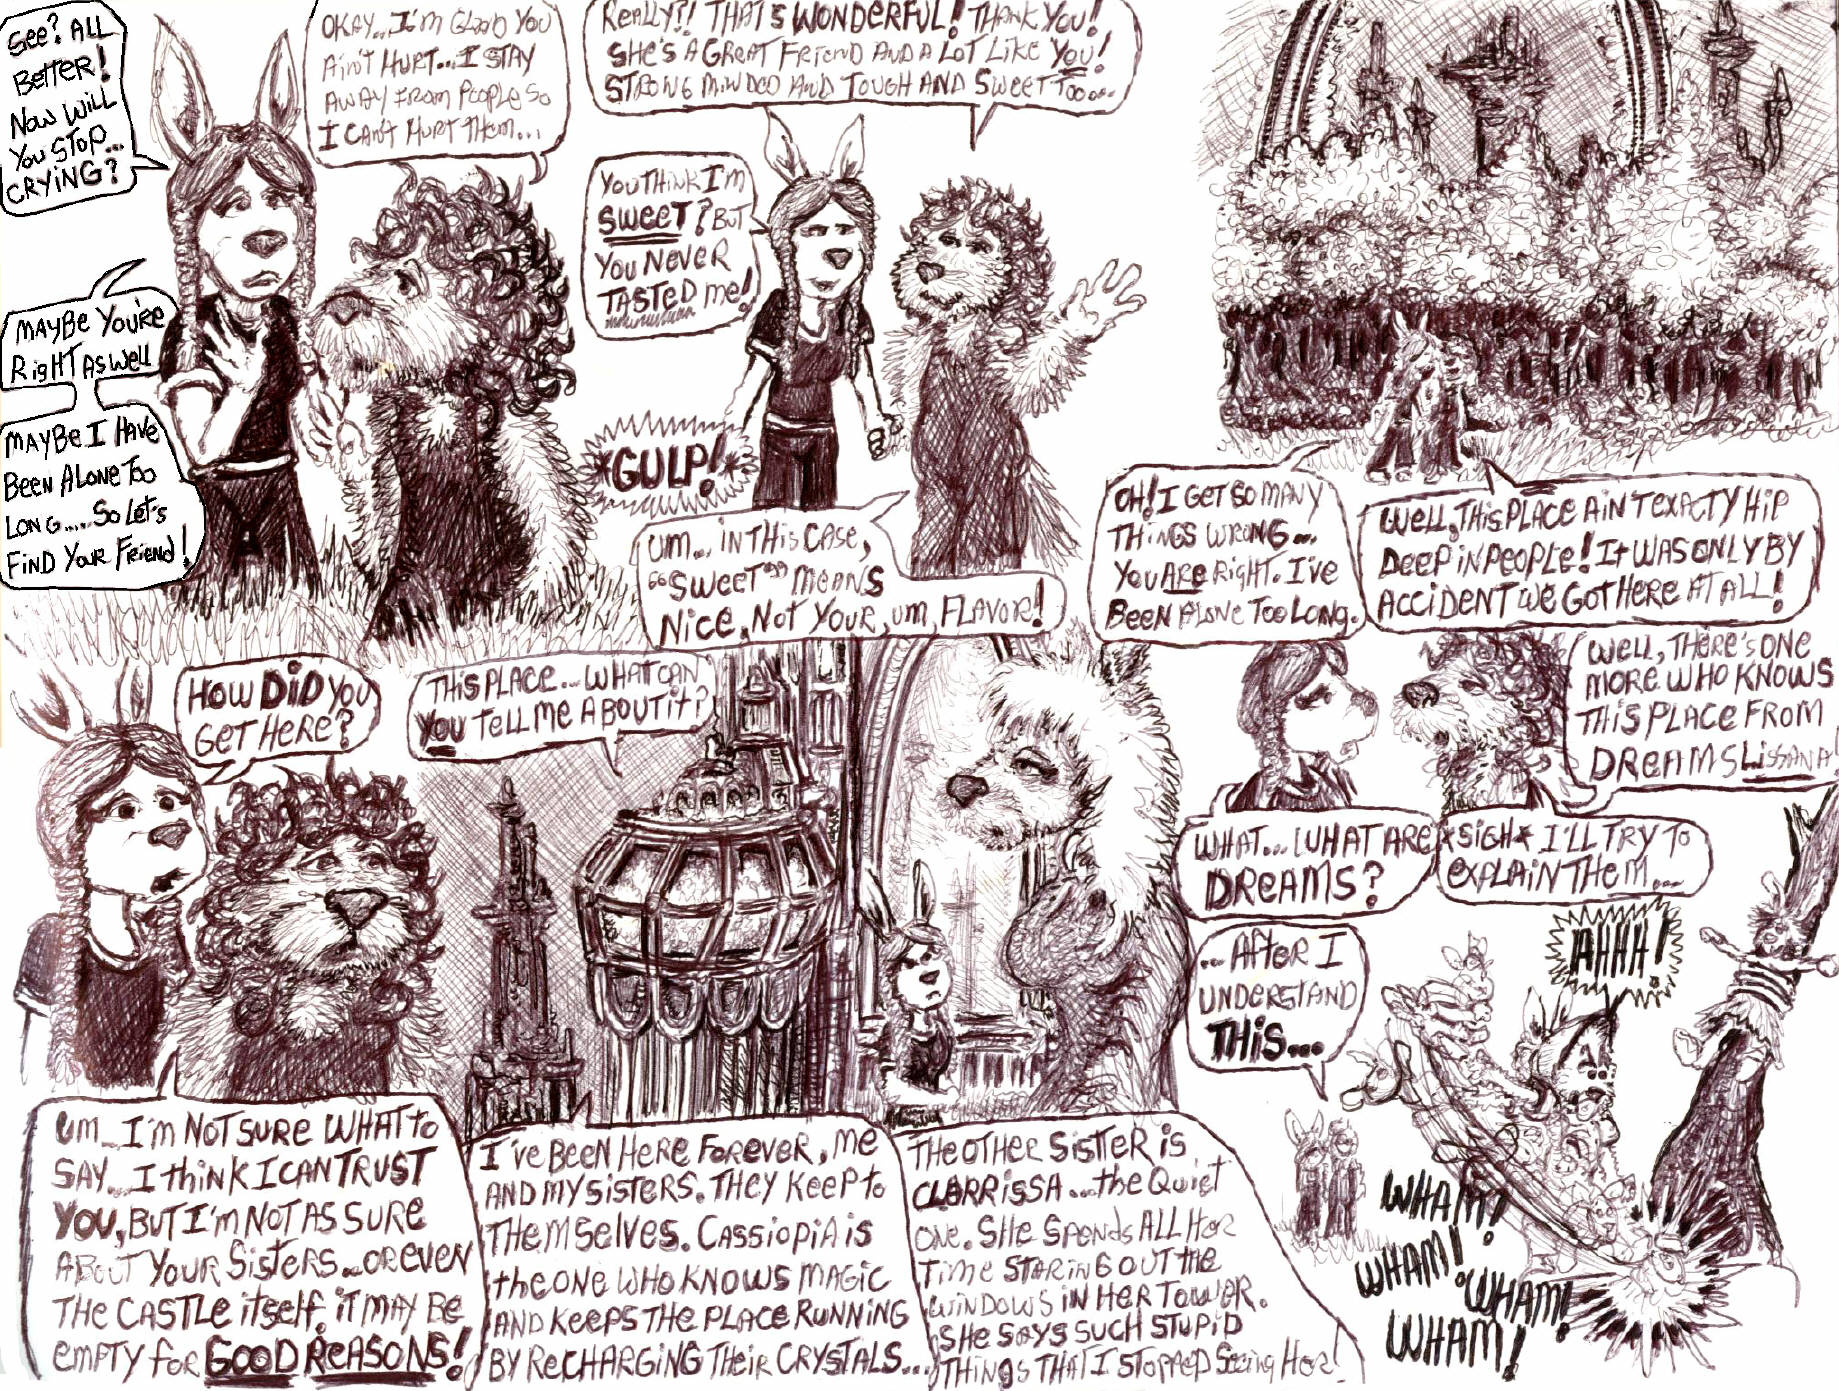 See? All
Better!
Now will
you stop...
crying?
Okay...I'm glad you
ain't hurt...I stay
away from people so
I can't hurt them...
Maybe you're
right as well
Maybe I have
been alone too
long.....So let's
find your friend!
Really?! That's wonderful! Thank you!
She's a great friend and a lot like you!
Strong minded and tough and sweet too...
You think I'm
sweet? But
you never
tasted me!
*GULP!*
Um... in this case,
"sweet" means
nice, not your, um, flavore!
Oh! I get so many
things wrong...
You are right. I've
been alone too long.
Well, this place ain't exacty hip
deep in people! It was only by
accident we got here at all!
How did you
get here?
Um...I'm not sure what to
say...I think I can trust
you, but I'm not as sure
about your sisters...or even
the castle itself. It may be
empty for good reasons!
This place...what can
you tell me about it?
I've been here forever, me
and my sisters. They keep to
themselves. Cassiopia is
the one who knows magic
and keeps the place running
by recharging their crystals...
The other sistter is
Clarrissa...the quiet
one. She spends all her
time staring out the
windows in her tower.
She says such stupid
things that I stopped seeing her!
Well, there's one
more who knows
this place from
dreams Lissana
What...what are
dreams?
*sigh* I'll try to
explain them...
...After I
understand
this...
AHHH!
WHAM!
WHAM!
WHAM!
WHAM!